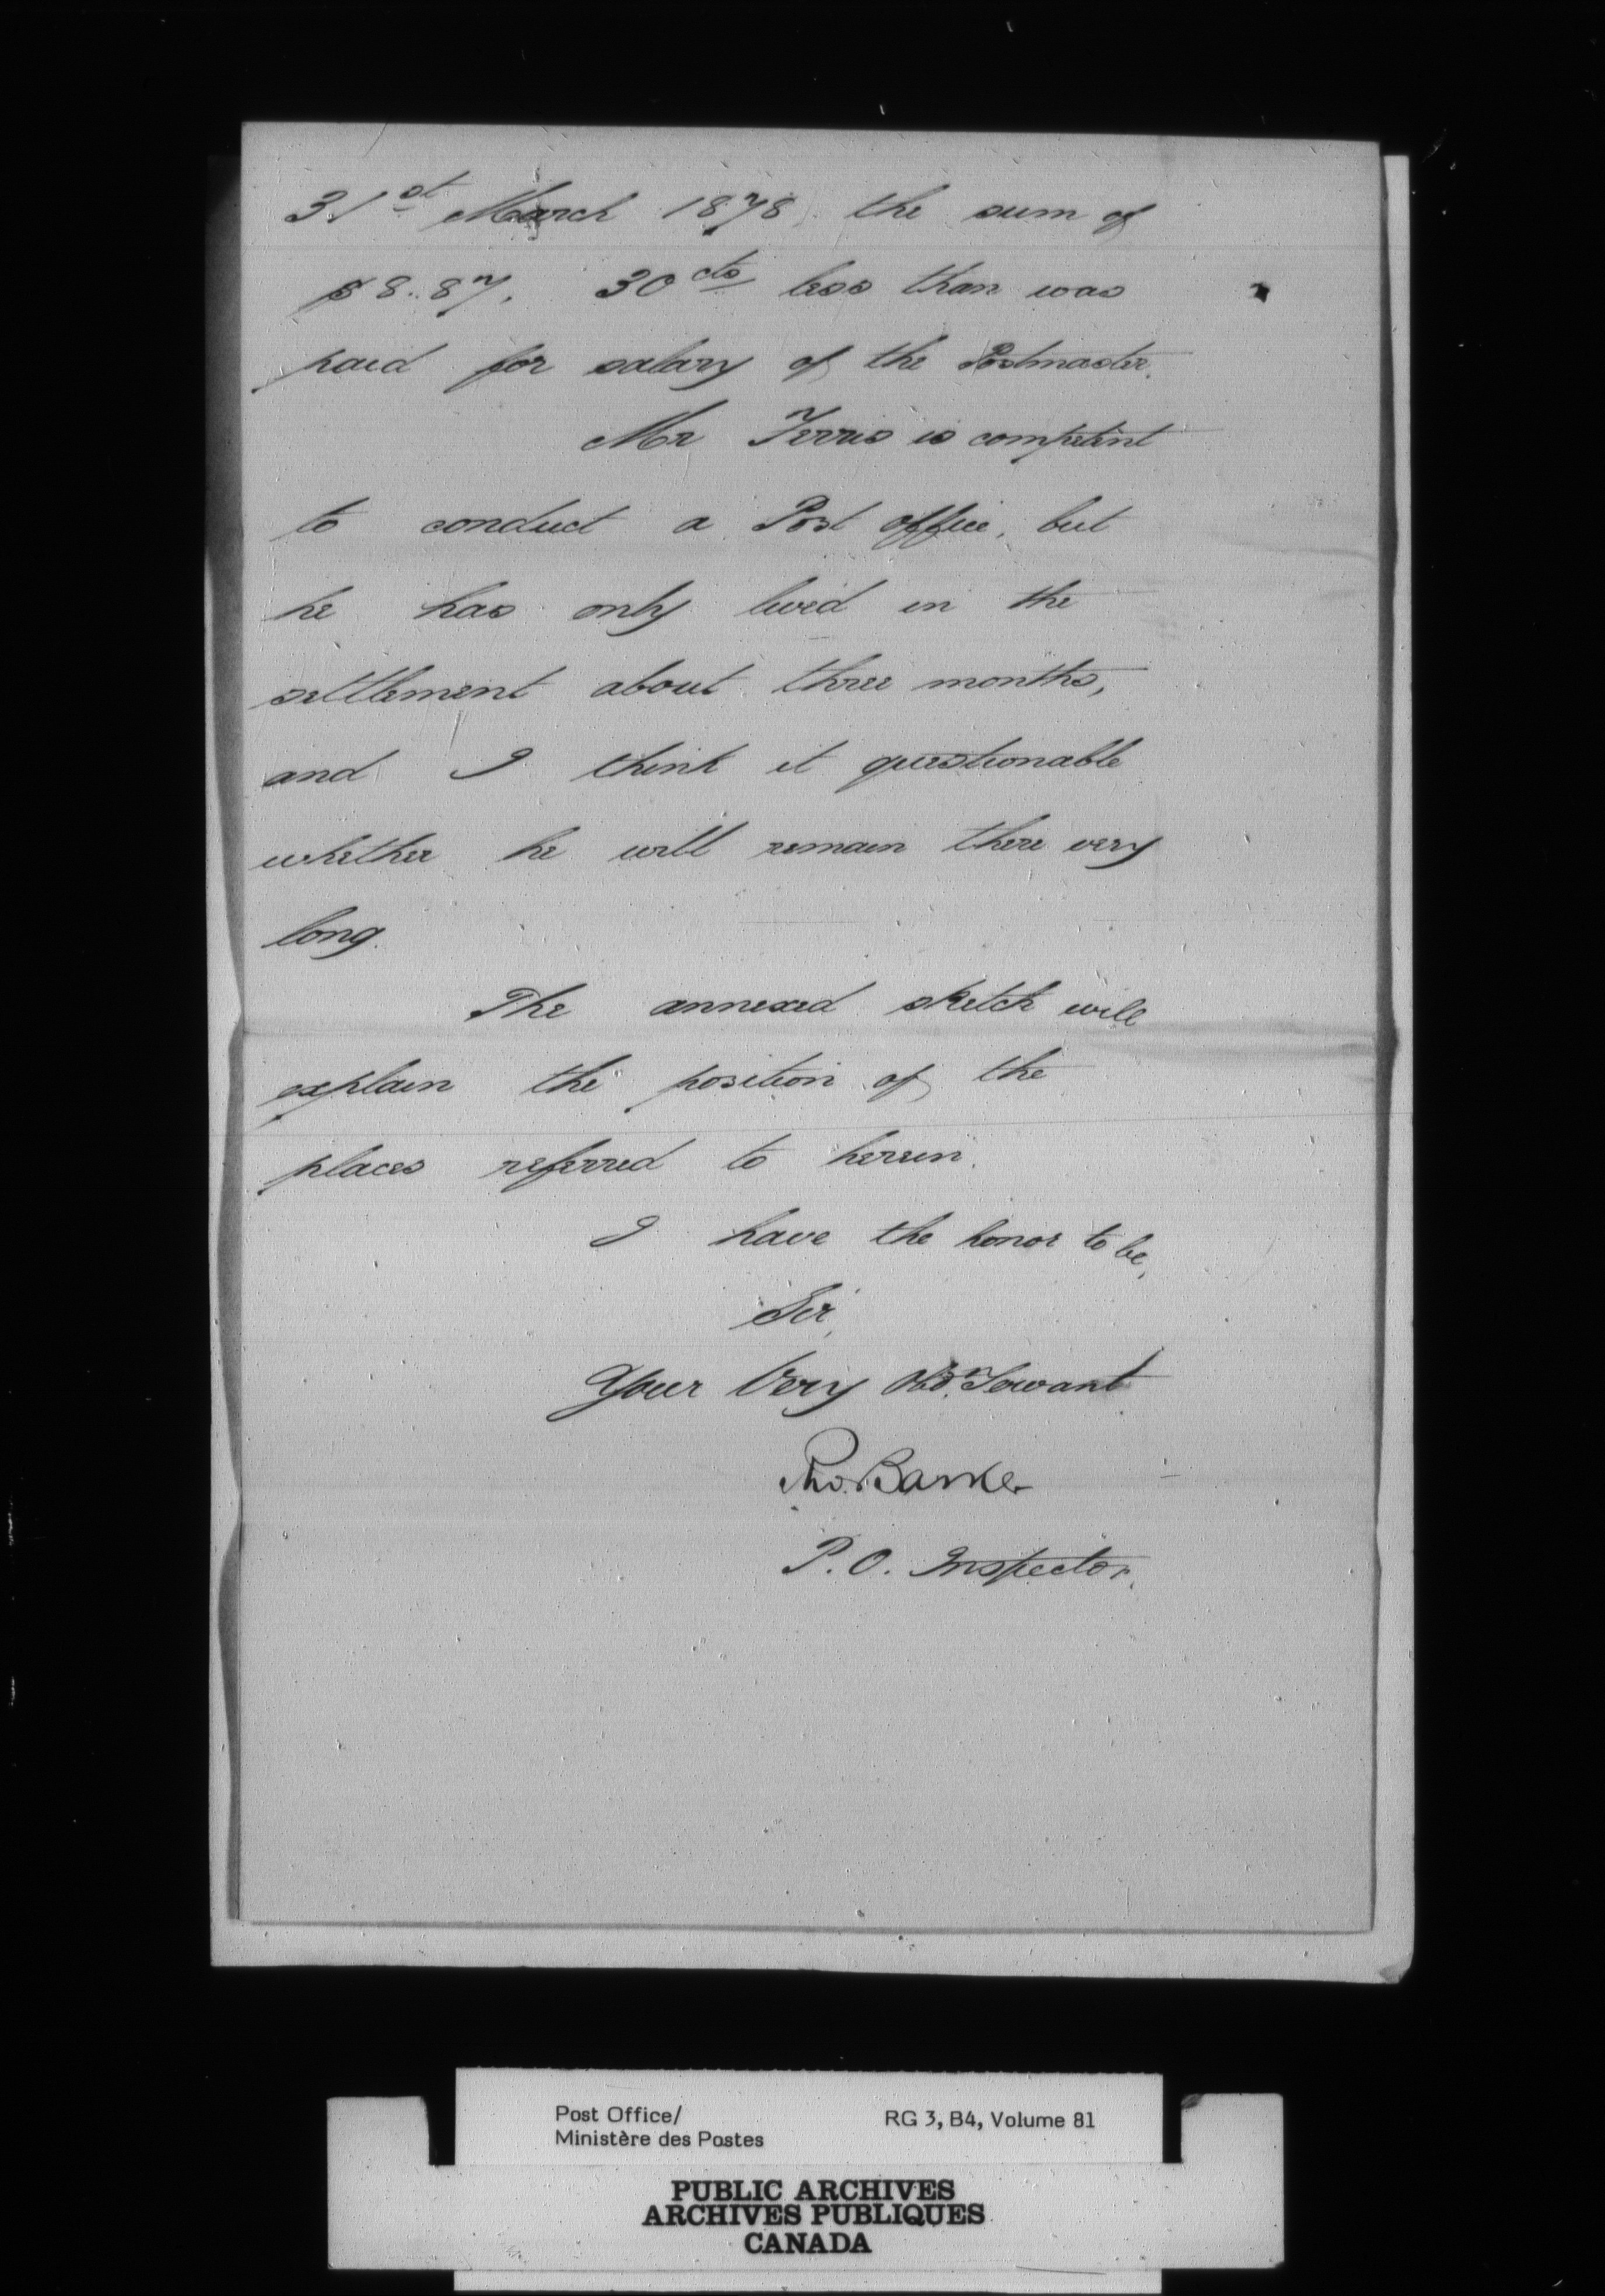 31st March 1878 the sum of
$8.87. 30cts less than was
paid for salary of the Postmaster.
Mr Ferris is competent
to conduct a Post office, but
he has only lived in the
settlement about three months,
and I think it questionable
whether he will remain there very
long.
The annexed sketch will
explain the position of the
places referred to herein.
I have the honor to be,
Sir,
Your Very Obdt Servant
Jno. Barker
P.O. Inspector.
Post Office/
Ministère des Postes
RG 3, B4, Volume 81
PUBLIC ARCHIVES
ARCHIVES PUBLIQUES
CANADA